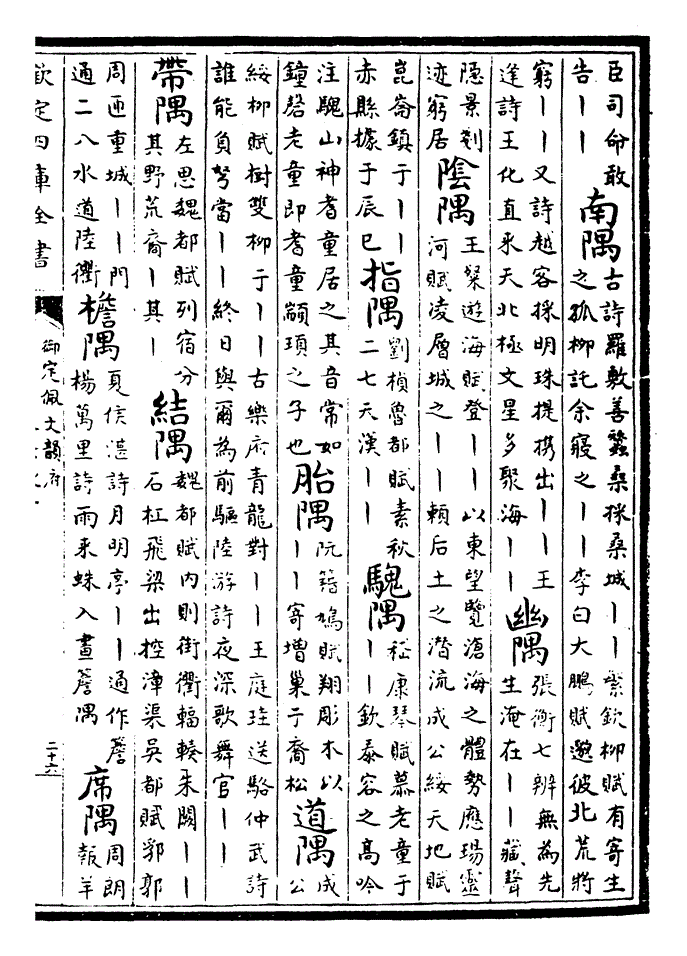 臣司命敢
告丨丨
南隅
古詩羅敷善蠶桑採桑城丨丨繁欽柳賦有寄生
之孤柳託余寢之丨丨李白大鵬賦邈彼北荒將
窮丨丨又詩越客採明珠提攜出丨丨王
逢詩王化直釆天北極文星多聚海丨丨
幽隅
張衡七辨無為先
生淹在丨丨藏聲
隱景剗
迹窮居
陰隅
王粲遊海賦登丨丨以東望覽滄海之體勢應瑒靈
河賦凌層城之丨丨賴后土之潛流成公綏天地賦
崑崙鎮于丨丨
赤縣據于辰巳
指隅
劉楨魯都賦素秋
二七天漢丨丨
騩隅
嵇康琴賦慕老童于
丨丨欽泰容之高吟
注騩山神耆童居之其音常如
鐘磬老童即耆童顓頊之子也
胎隅
阮籍鳩賦翔彫木以
丨丨寄增巢于裔松
道隅
成
公
綏柳賦樹雙柳于丨丨古樂府青龍對丨丨王庭珪送駱仲武詩
誰能負弩當丨丨終日與爾為前驅陸游詩夜深歌舞官丨丨
帶隅
左思魏都賦列宿分
其野荒裔丨其丨
結隅
魏都賦内則街衢輻輳朱闕丨丨
石杠飛梁出控漳渠吳都賦郛郭
周匝重城丨丨門
通二八水道陸衢
檐隅
夏侯湛詩月明亭丨丨通作簷
楊萬里詩雨來蛛入畫簷隅
席隅
周朗
報羊
欽定四庫全書
御定佩文韻府
二十六